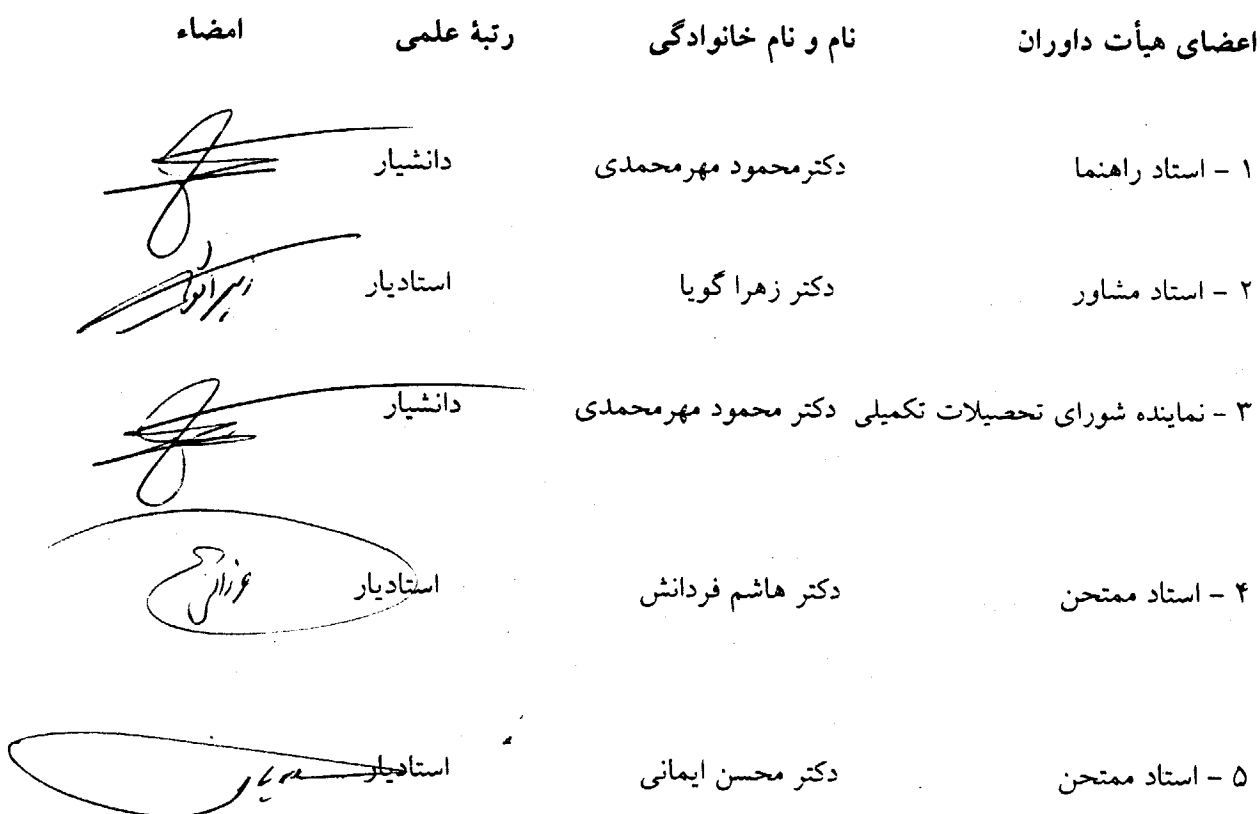 اعضای هیأت داوران نام و نام خانوادگی رتبهٔ علمی امضاء
۱ - استاد راهنما دکترمحمود مهرمحمدی دانشیار
۲ - استاد مشاور دکتر زهرا گویا استادیار
۳ - نماینده شورای تحصیلات تکمیلی دکتر محمود مهرمحمدی دانشیار
۴ - استاد ممتحن دکتر هاشم فردانش استادیار
۵ - استاد ممتحن دکتر محسن ایمانی استادیار